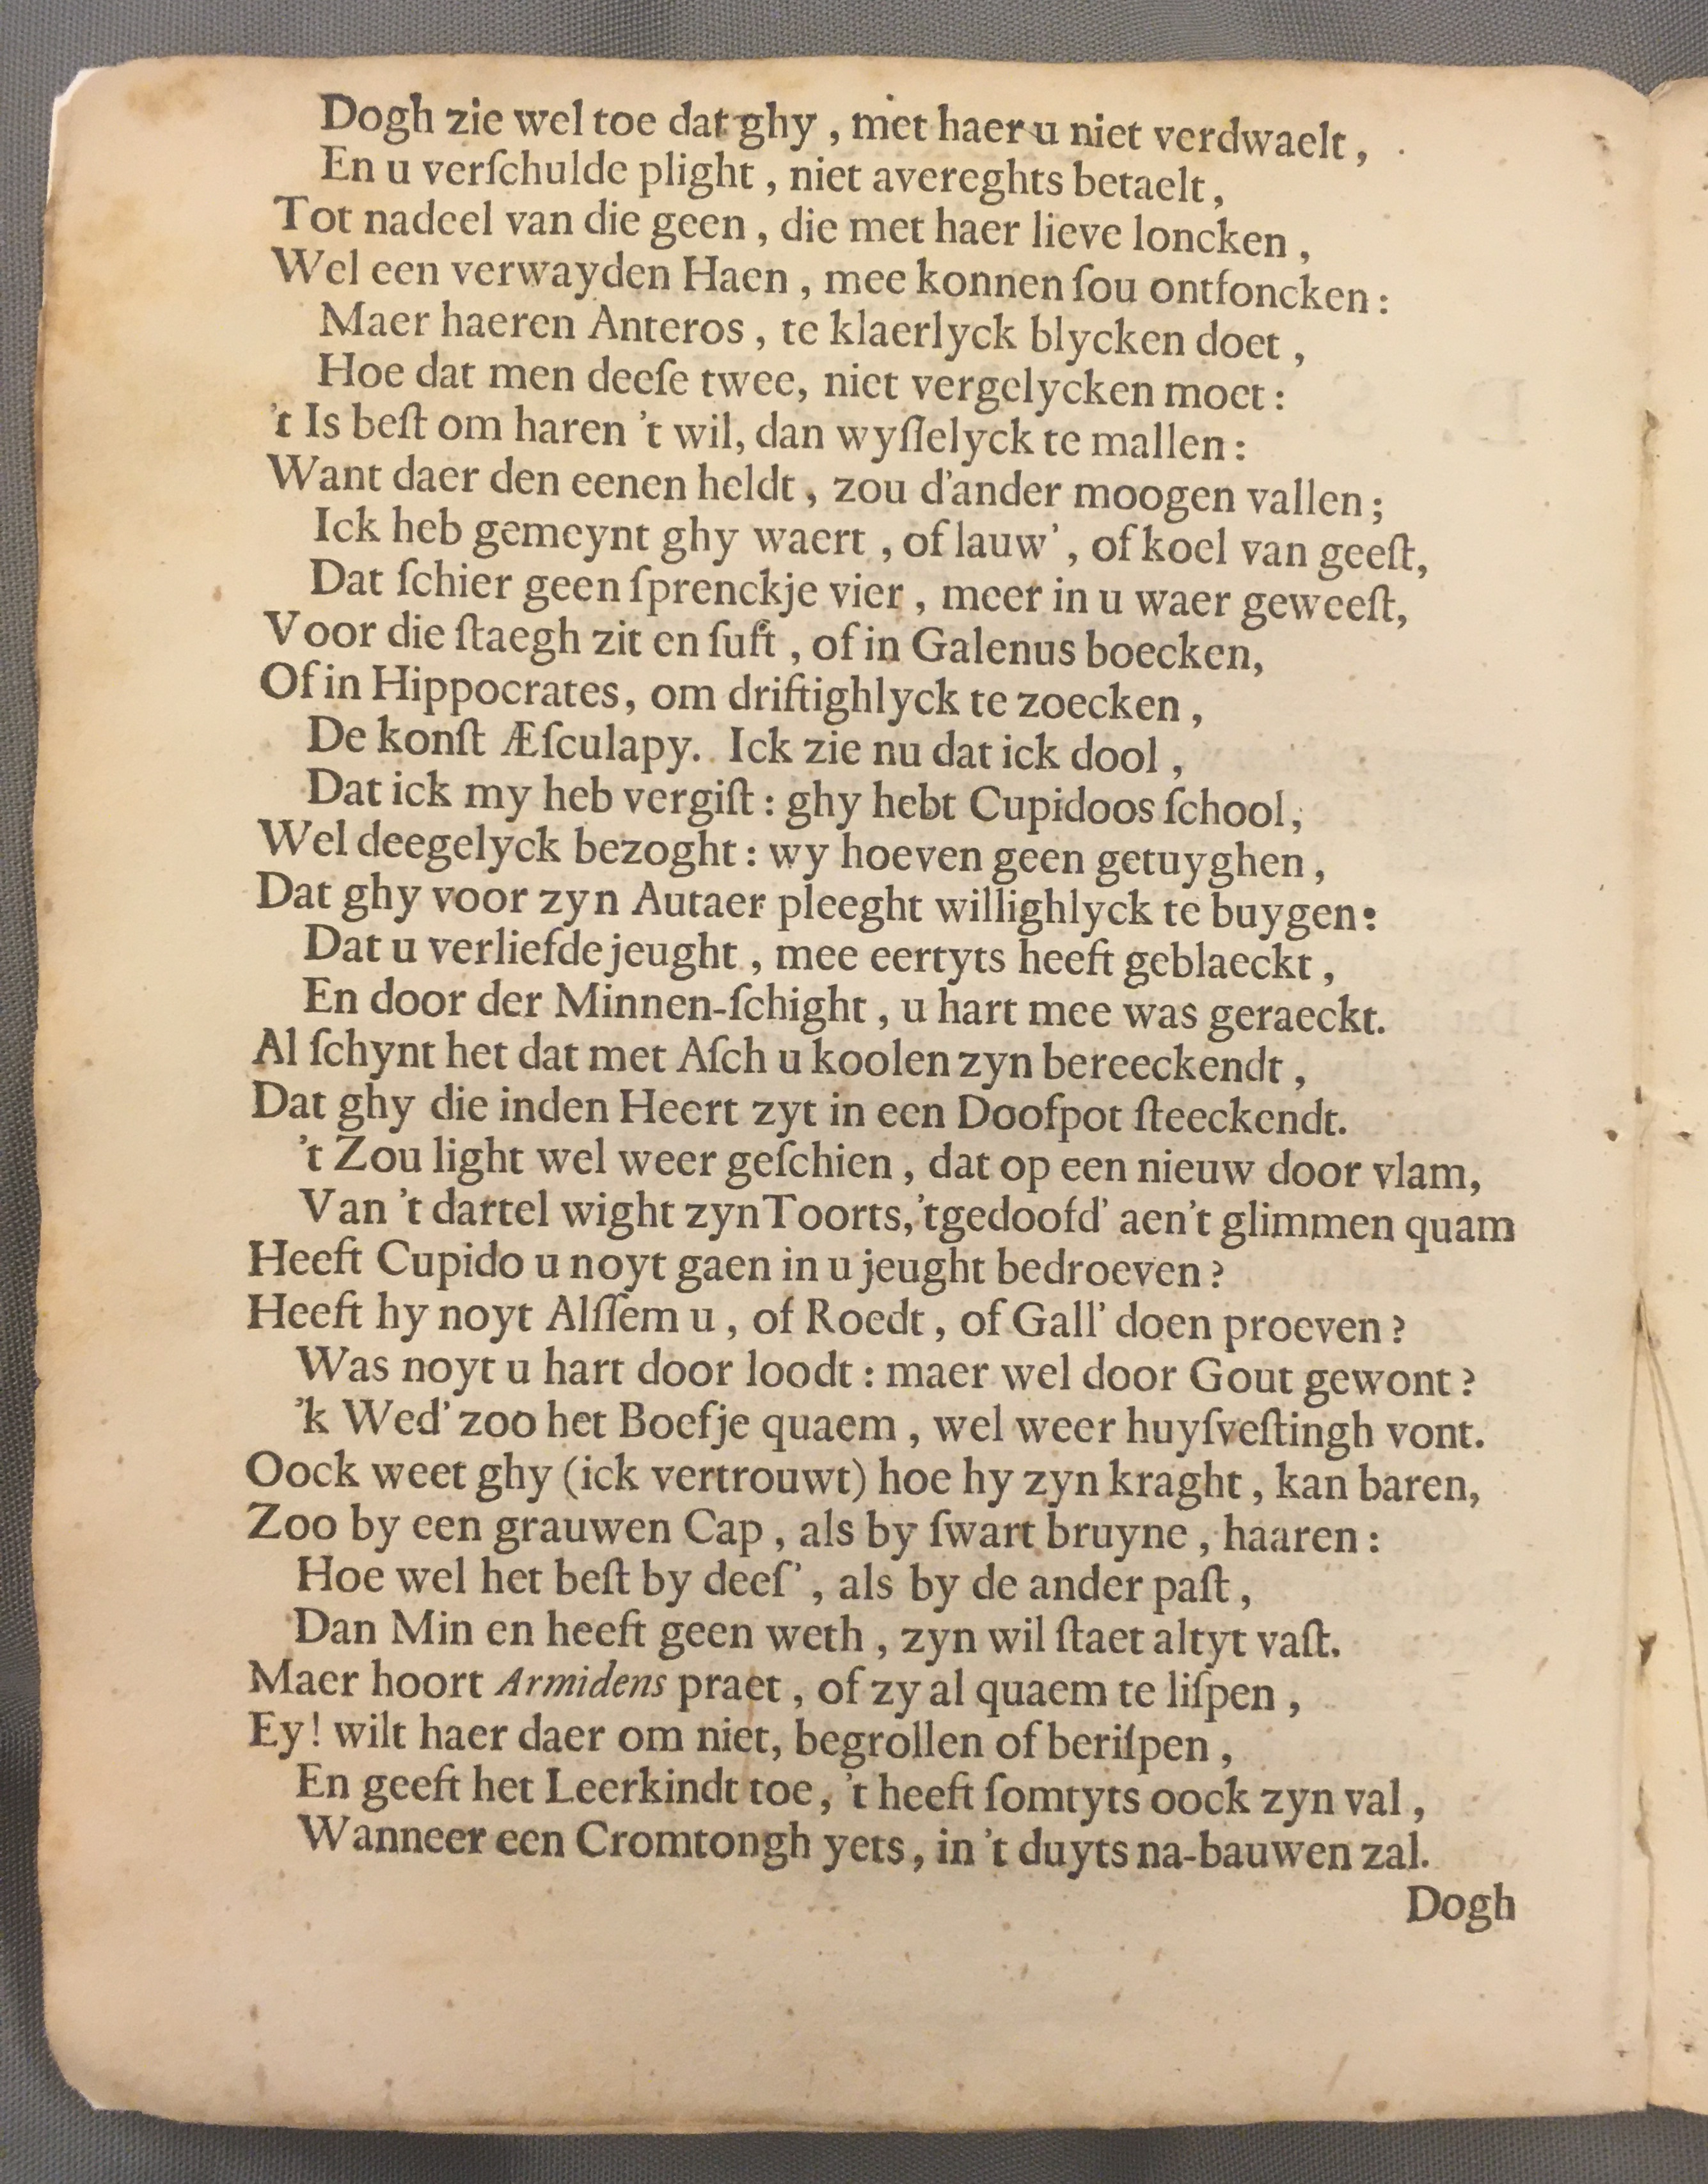 Dogh zie wel toe dat ghy , met haer u niet verdwaelt ,
En u verſchulde plight , niet avereghts betaelt ,
Tot nadeel van die geen , die met haer lieve loncken ,
Wel een verwayden Haen , mee konnen ſou ontfoncken :
Maer haeren Anteros , te klaerlyck blycken doet ,
Hoe dat men deeſe twee, niet vergelycken moet :
't Is beſt om haren 't wil, dan wyſſelyck te mallen :
Want daer den eenen heldt , zou d'ander moogen vallen ;
Ick heb gemeynt ghy waert , of lauw' , of koel van geeſt,
Dat ſchier geen ſprenckje vier , meer in u waer geweeſt,
Voor die ſtaegh zit en ſuft , of in Galenus boecken,
Of in Hippocrates, om driftighlyck te zoecken ,
De konſt Æſculapy. Ick zie nu dat ick dool ,
Dat ick my heb vergiſt : ghy hebt Cupidoos ſchool,
Wel deegelyck bezoght : wy hoeven geen getuyghen ,
Dat ghy voor zyn Autaer pleeght willighlyck te buygen:
Dat u verliefde jeught , mee eertyts heeft geblaeckt ,
En door der Minnen-ſchight , u hart mee was geraeckt.
Al ſchynt het dat met Aſch u koolen zyn bereeckendt ,
Dat ghy die inden Heert zyt in een Doofpot ſteeckendt.
't Zou light wel weer geſchien , dat op een nieuw door vlam,
Van 't dartel wight zyn Toorts, 'tgedoofd' aen't glimmen quam
Heeft Cupido u noyt gaen in u jeught bedroeven ?
Heeft hy noyt Alſſem u , of Roedt , of Gall' doen proeven ?
Was noyt u hart door loodt : maer wel door Gout gewont ?
'k Wed' zoo het Boefje quaem , wel weer huyſveſtingh vont.
Oock weet ghy (ick vertrouwt) hoe hy zyn kraght , kan baren,
Zoo by een grauwen Cap , als by ſwart bruyne , haaren :
Hoe wel het beſt by deeſ' , als by de ander paſt ,
Dan Min en heeft geen weth , zyn wil ſtaet altyt vaſt.
Maer hoort Armidens praet , of zy al quaem te liſpen ,
Ey! wilt haer daer om niet, begrollen of beriſpen ,
En geeft het Leerkindt toe, 't heeft ſomtyts oock zyn val ,
Wanneer een Cromtongh yets, in 't duyts na-bauwen zal.
Dogh